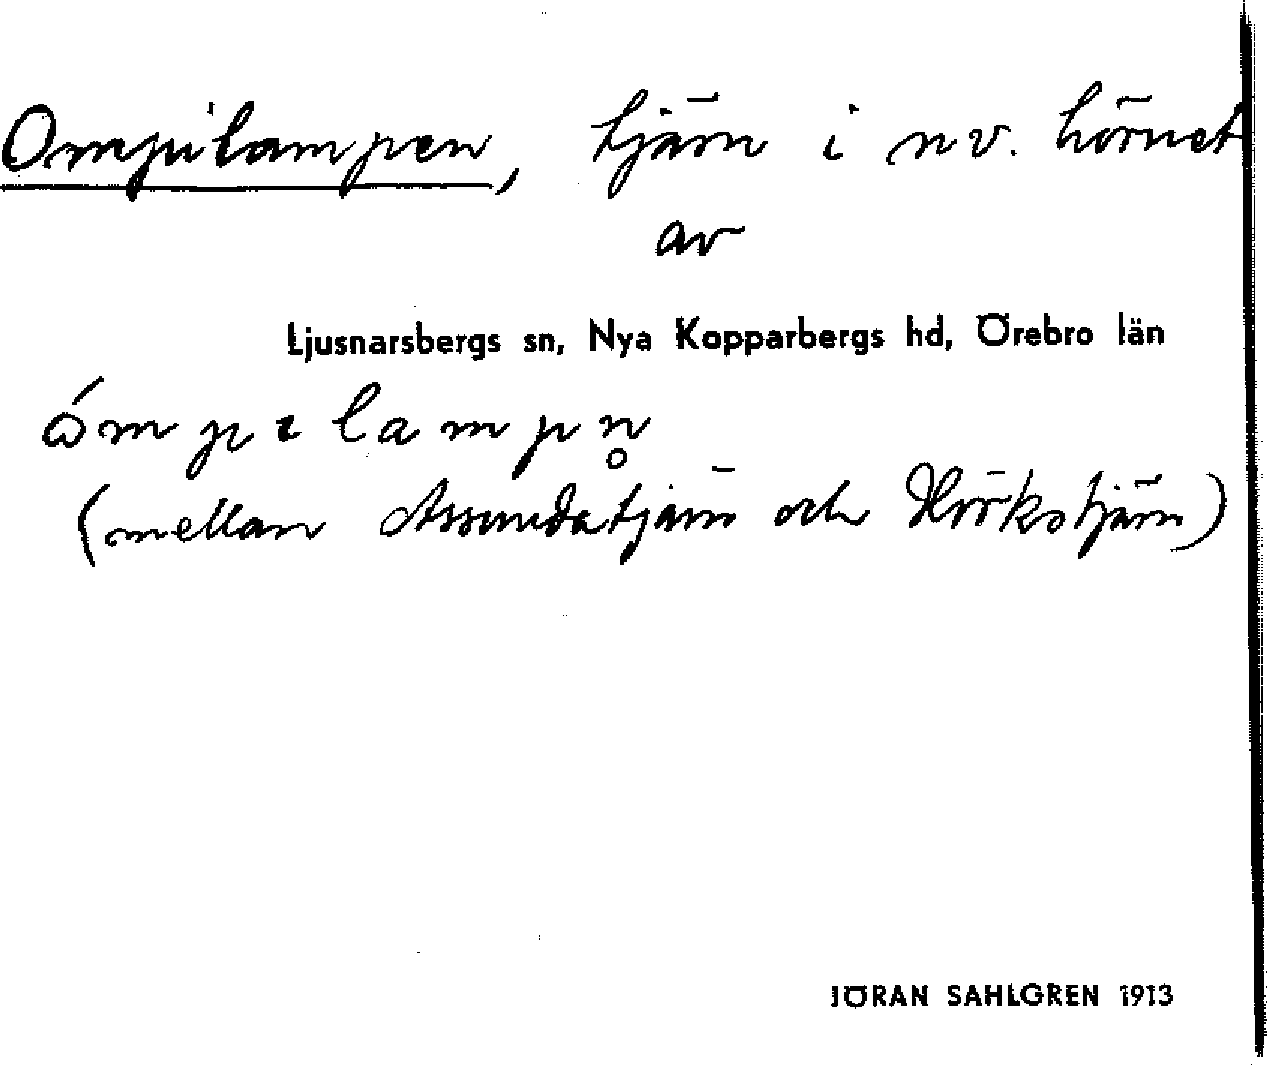 Ompilampen, tjärn i nv. hörnet
av
Ljusnarsbergs sn, Nya Kopparbergs hd, Örebro län
ɷ́mpɩlampn̥
(mellan Assundatjärn och Höökstjärn)
JÖRAN SAHLGREN 1913